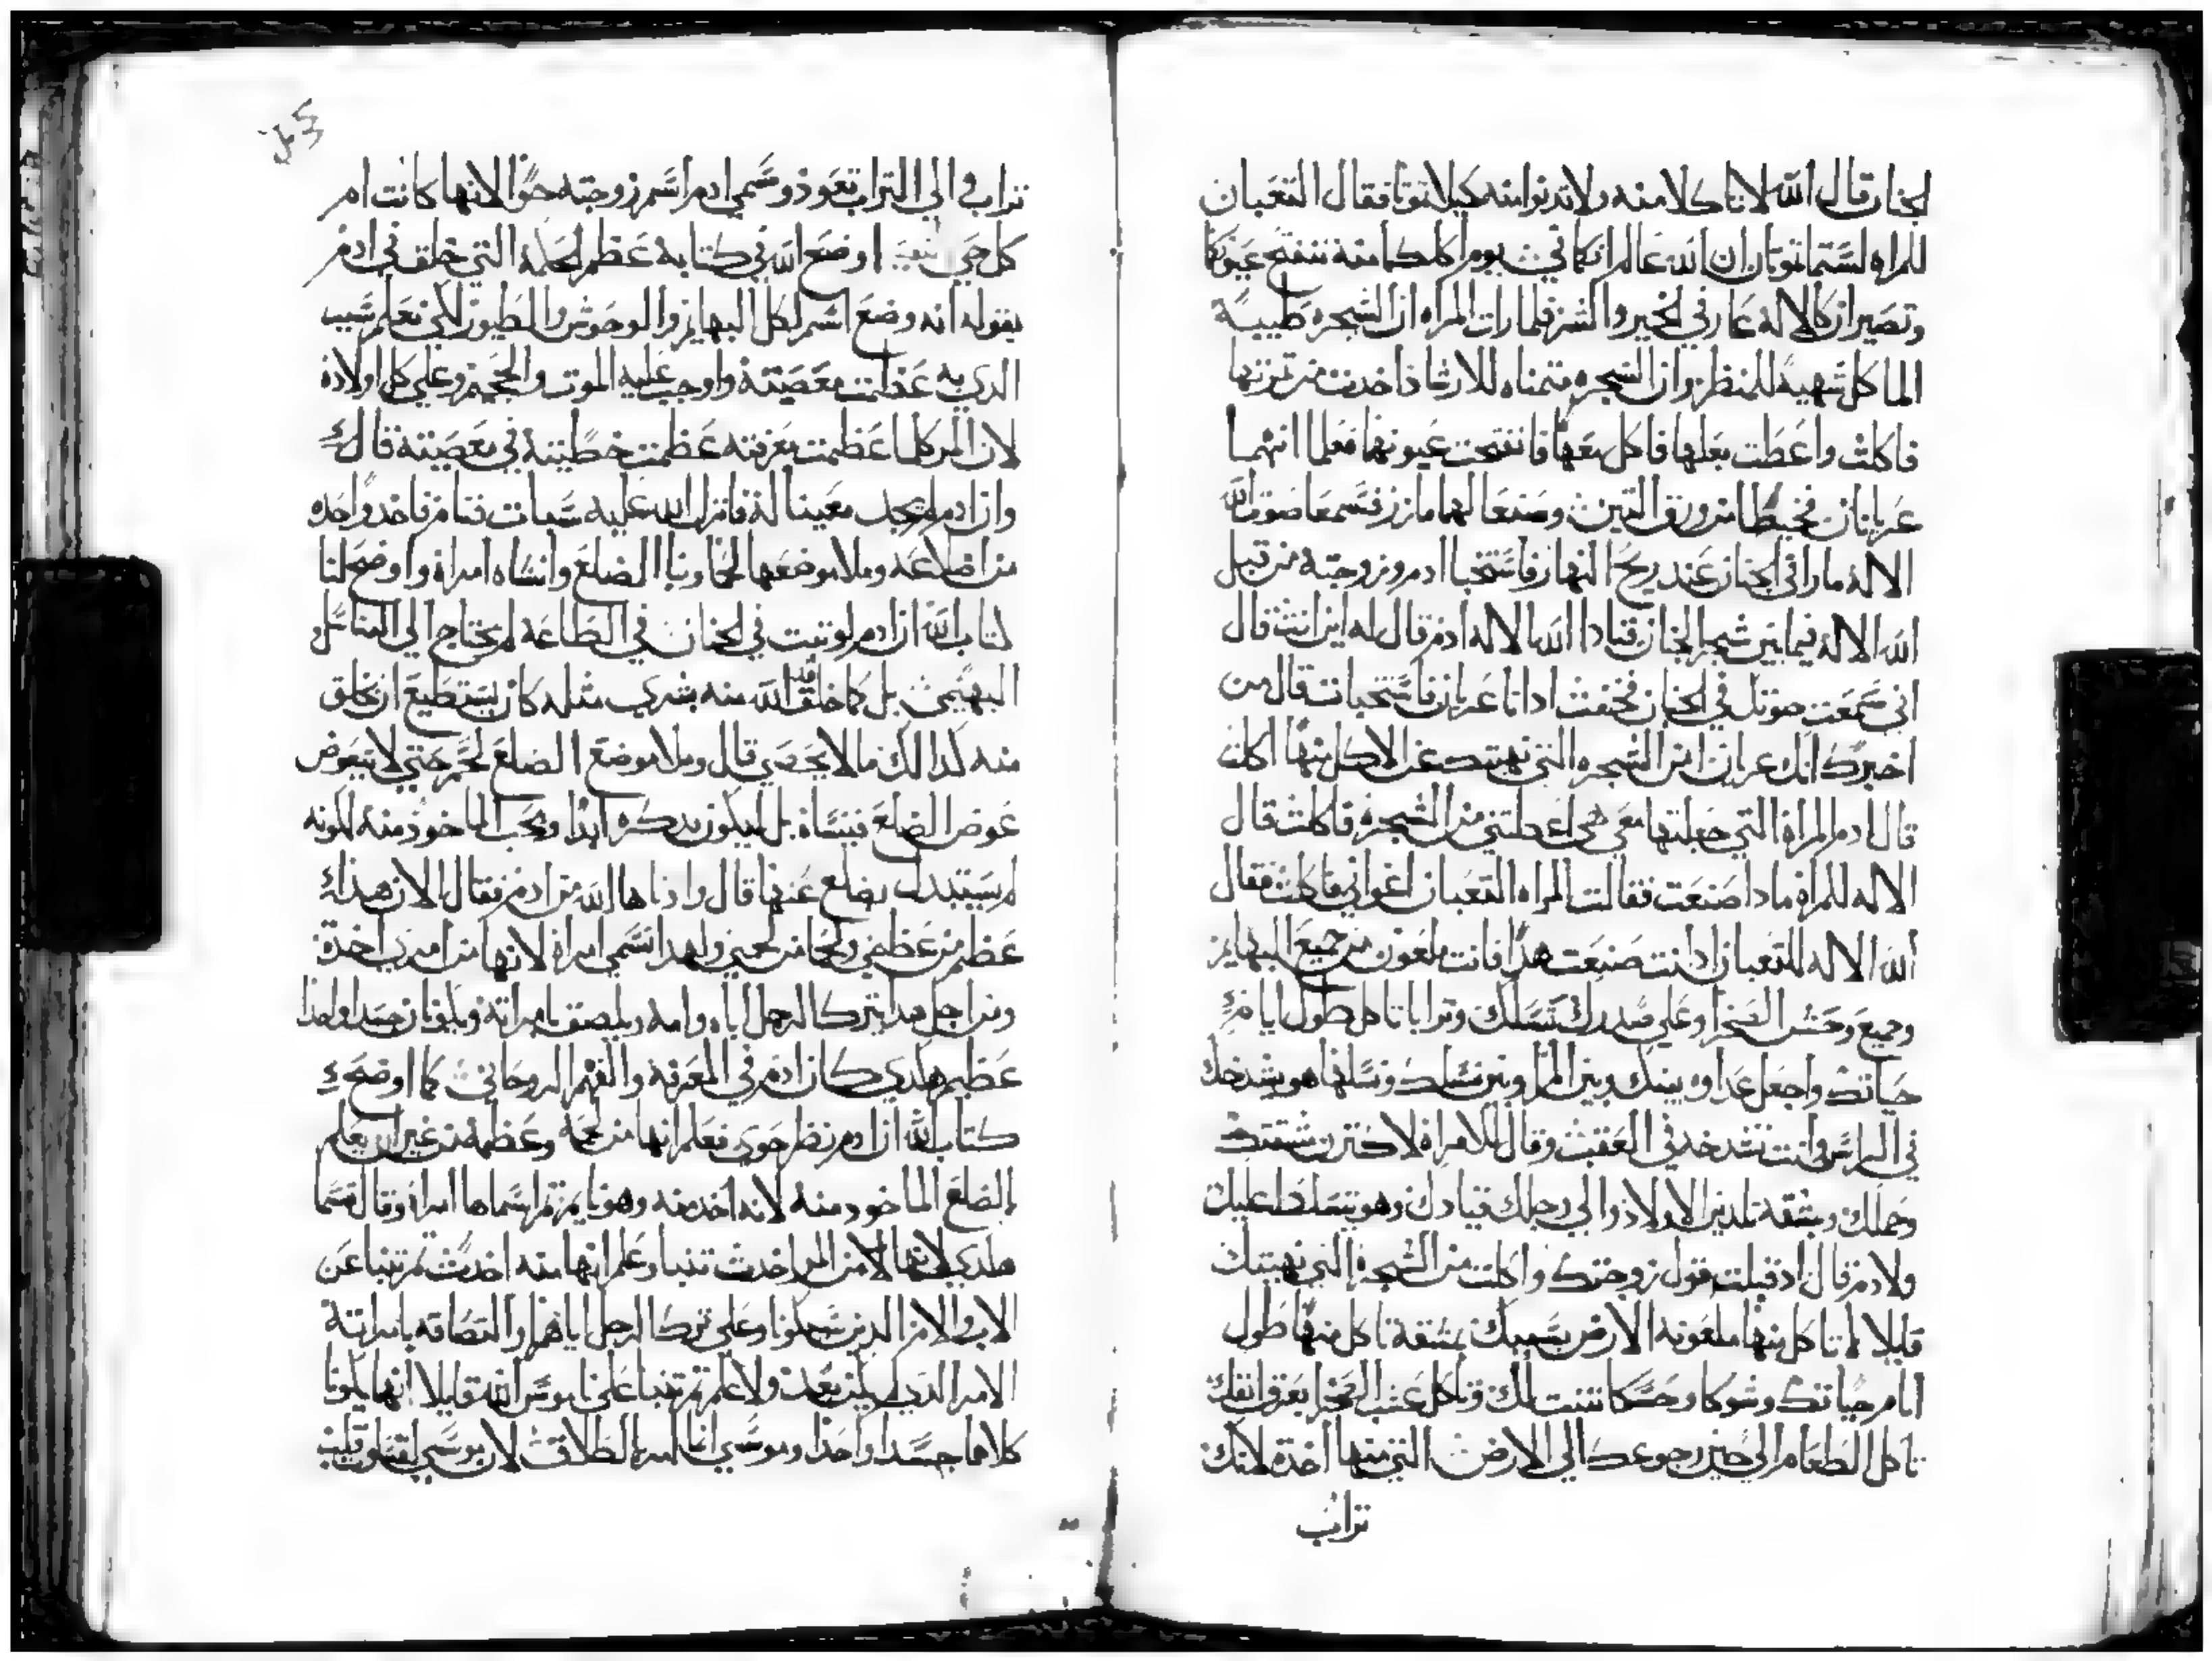 الجنان قال الله لا تاكلا منه ولا تدنوا منه كيلا تموتا فقال التعبان
للمراه لستما تموتان ان الله عالم انكما في يوم اكلكما منه تنفتح عيونكما
وتصيران كالالهة عارفي الخير والشر فلما رات المراه ان الشجره طيبة
الماكل شهية للمنظر وان الشجره متمناه للارشاد اخدت من تمرتها
فاكلت واعطت بعلها فاكل معها فانفتحت عيونهما فعلما انهما
عريانان فخيطا من ورق التين وصنعا لهما مازر فسمعا صوت الله
الاله مارا في الجنان عند ريح النهار فاستخبا ادم وزوجته من قبل
الله الاله فيما بين شجر الجنان فنادا الله الاله ادم قال له اين انت قال
اني سمعت صوتك في الجنان فخفت اد انا عريان فاستخبات قال من
اخبرك انك عريان امن الشجره التي نهيتك عن الاكل منها اكلت
قال ادم المراة التي جعلتها معي هي اعطتني من الشجره فاكلت قال
الاله للمراه مادا صنعت فقالت المراه التعبان اغواني فاكلت فقال
الله الاله للتعبان اد انت صنعت هدا فانت ملعون من جميع البهايم
وجميع وحش الصحرا وعلي صدرك تسلك وترابا تاكل طول ايام
حياتك واجعل عداوه بينك وبين المراه وبين نسلك ونسلها هو يشدخك
في الراس وانت تشدخه في العقب وقال للامراه لاكترن مشقتك
وحملك وبمشقه تلدين الاولاد والي رجلك قيادك وهو يتسلط عليك
ولادم قال اد قبلت قول زوجتك واكلت من الشجره التي نهيتك
قايلا لا تاكل منها ملعونه الارض بسببك بمشقة تاكل منها طول
ايام حياتك وشوكا وحسكا تنبت لك وتاكل عشب الصحرا بعرق انفك
تاكل الطعام الي حين رجوعك الي الارض التي منها اخدت لانك
تراب
تراب والي التراب تعود وسمي ادم اسم زوجته حوا لانها كانت ام
كل حي اوضح الله في كتابه عظم الحكمة التي خلق في ادم
بقوله انه وضع اسم لكل البهايم والوحوش والطيور لكي نعلم سبب
الدي به عظمت معصيتة واوجب عليه الموت والجحيم وعلي كل اولاده
لان المر كلما عظمت معرفته عظمت خطيته في معصيته قال
وان ادم لم يجد معينا لة فانزل الله عليه سبات فنام فاخد واحده
من اضلاعه وملا موضعها لحما وبنا الضلع وانشاه امراة واوضح لنا
كتاب الله ان ادم لو تبت في الجنان في الطاعه لم يحتاج الي التناسل
البهيمي بل كما خلق الله منه بشري مثله كان يستطيع ان يخلق
منه كدالك ما لا يحصي قال وملا موضع الضلع لحم حتي لا يتعوض
عوض الضلع فينساة بل ليكون يدكره ابدا ويحب الماخود منه لكونه
لم يستبدل بضلع عنها قال وادناها الله من ادم فقال الان هدا
عظم من عظمي ولحما من لحمي ولهدا تسمي امراة لانها من امري اخدة
ومن اجل هدا يترك الرجل اباه وامه ويلصق بامراتة ويكونان جسدا واحدا
عظيم هكدي كان ادم في المعرفه والفهم الروحاني كما اوضح
كتاب الله ان ادم نظر حوي فعلم انها من لحمه وعظمه من غير ان يعلم
بالضلع الماخود منه لانه اخد منه وهو نايم تم اسماها امراة وقال تسما
هكدي لانها من المر اخدت تنبا وعلم انها منه اخدت تم تنبا عن
الاب والام الدين سيكونا وعلي ترك الرجل اياهم والتصاقه بامراتة
الامر الدي لم يكن بعد ولا علم تم تنبا علي ناموس الله قايلا انهما يكونا
كلاهما جسدا واحدا وموسي انما امر بالطلاق لان موسي لقساوة قلب